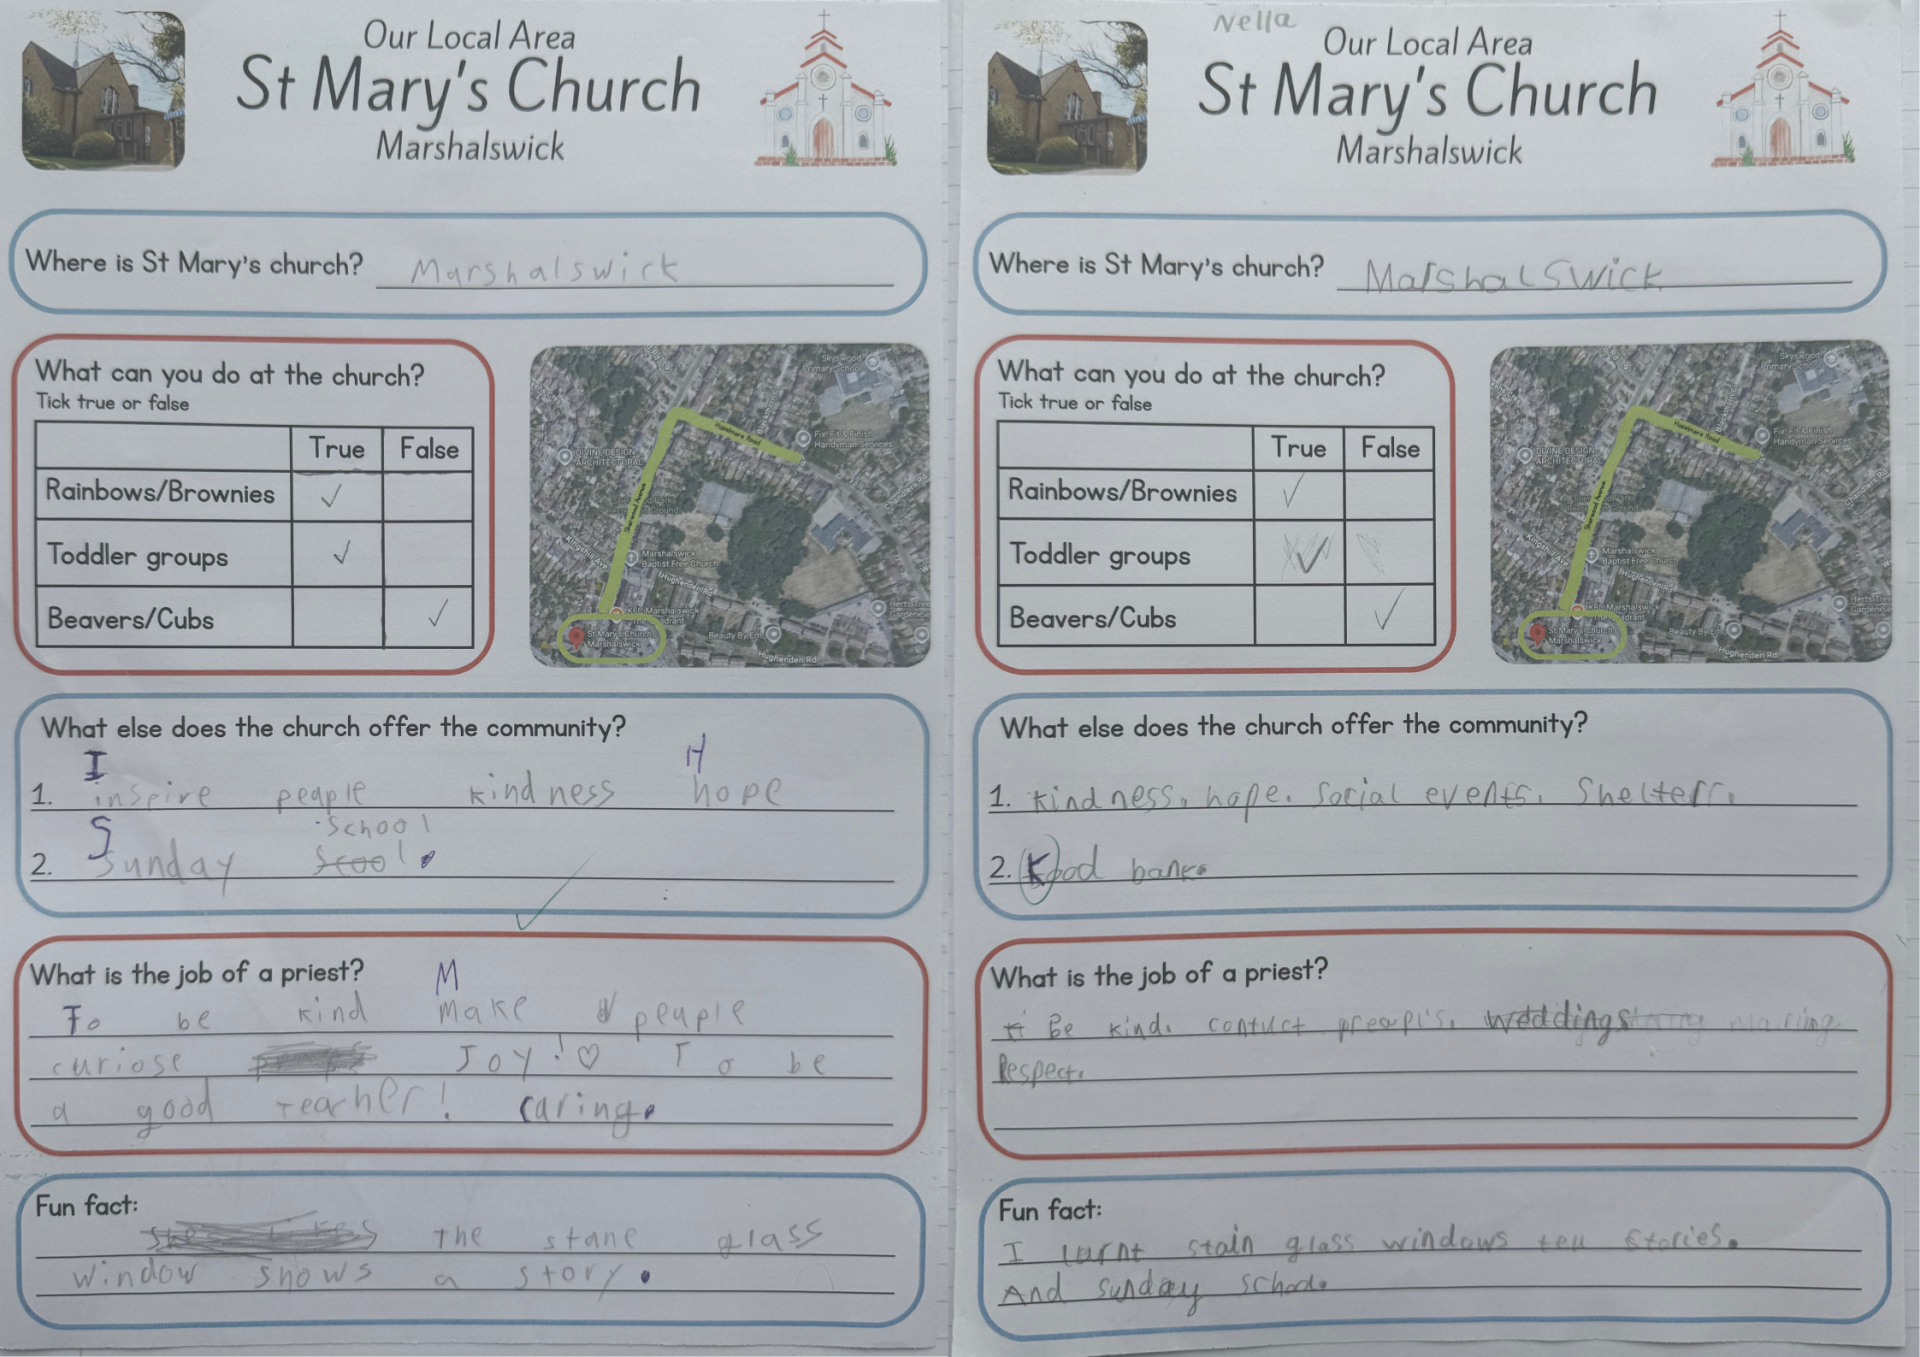 Our Local Area
St Mary's Church
Marshalswick
Where is St Mary's church? Marshalswick
What can you do at the church?
Tick true or false
True False
Rainbows/Brownies ✓
Toddler groups ✓
Beavers/Cubs ✓
Skyswood
Primary School
Hazelmere Road
Fix Fit & Finish
Handyman Services
DIVINE DESIGN
ARCHITECTURAL
Sherwood Avenue
Marshalswick
Baptist Free Church
Hughenden Rd
KFC Marshalswick
St Mary's Church
Marshalswick
Beauty By Em
Hughenden Rd
What else does the church offer the community?
I H
1. inspire peaple kindness hope
S school
2. sunday scool.
What is the job of a priest? M
To be kind make peaple
curiose Joy! ♡ To be
a good teacher! caring.
Fun fact:
The stane glass
window shows a story.
Nella
Our Local Area
St Mary's Church
Marshalswick
Where is St Mary's church? Marshalswick
What can you do at the church?
Tick true or false
True False
Rainbows/Brownies ✓
Toddler groups ✓
Beavers/Cubs ✓
Skyswood
Primary School
Hazelmere Road
Fix Fit & Finish
Handyman Services
DIVINE DESIGN
ARCHITECTURAL
Sherwood Avenue
Marshalswick
Baptist Free Church
KFC Marshalswick
St Mary's Church
Marshalswick
Beauty By Em
Hughenden Rd
What else does the church offer the community?
1. kindness, hope. Social events. Shelterr.
2. food bank.
What is the job of a priest?
Be kind. weddings
Respect.
Fun fact:
I lurnt stain glass windows tell stories.
And sunday school.